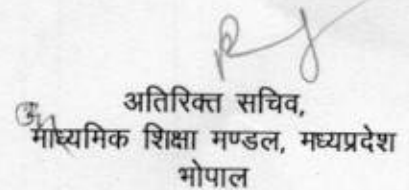 अतिरिक्त सचिव,
माध्यमिक शिक्षा मण्डल, मध्यप्रदेश
भोपाल